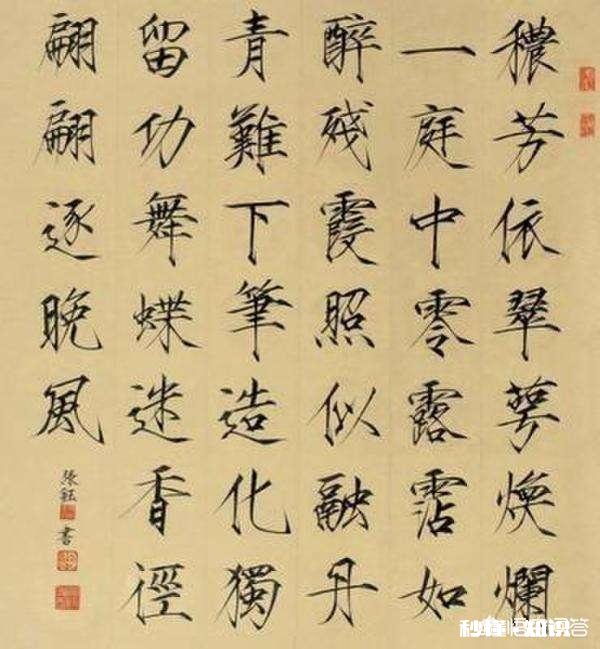 穠芳依翠萼煥爛
一庭中零露霑如
醉殘霞照似融丹
青難下筆造化獨
留功舞蝶迷香徑
翩翩逐晚風
張鈺書
秒懂知识